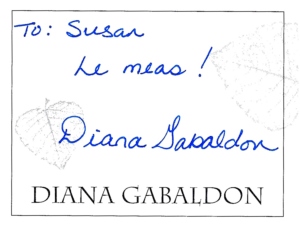 To: Susan
Le meas!
Diana Gabaldon
DIANA GABALDON